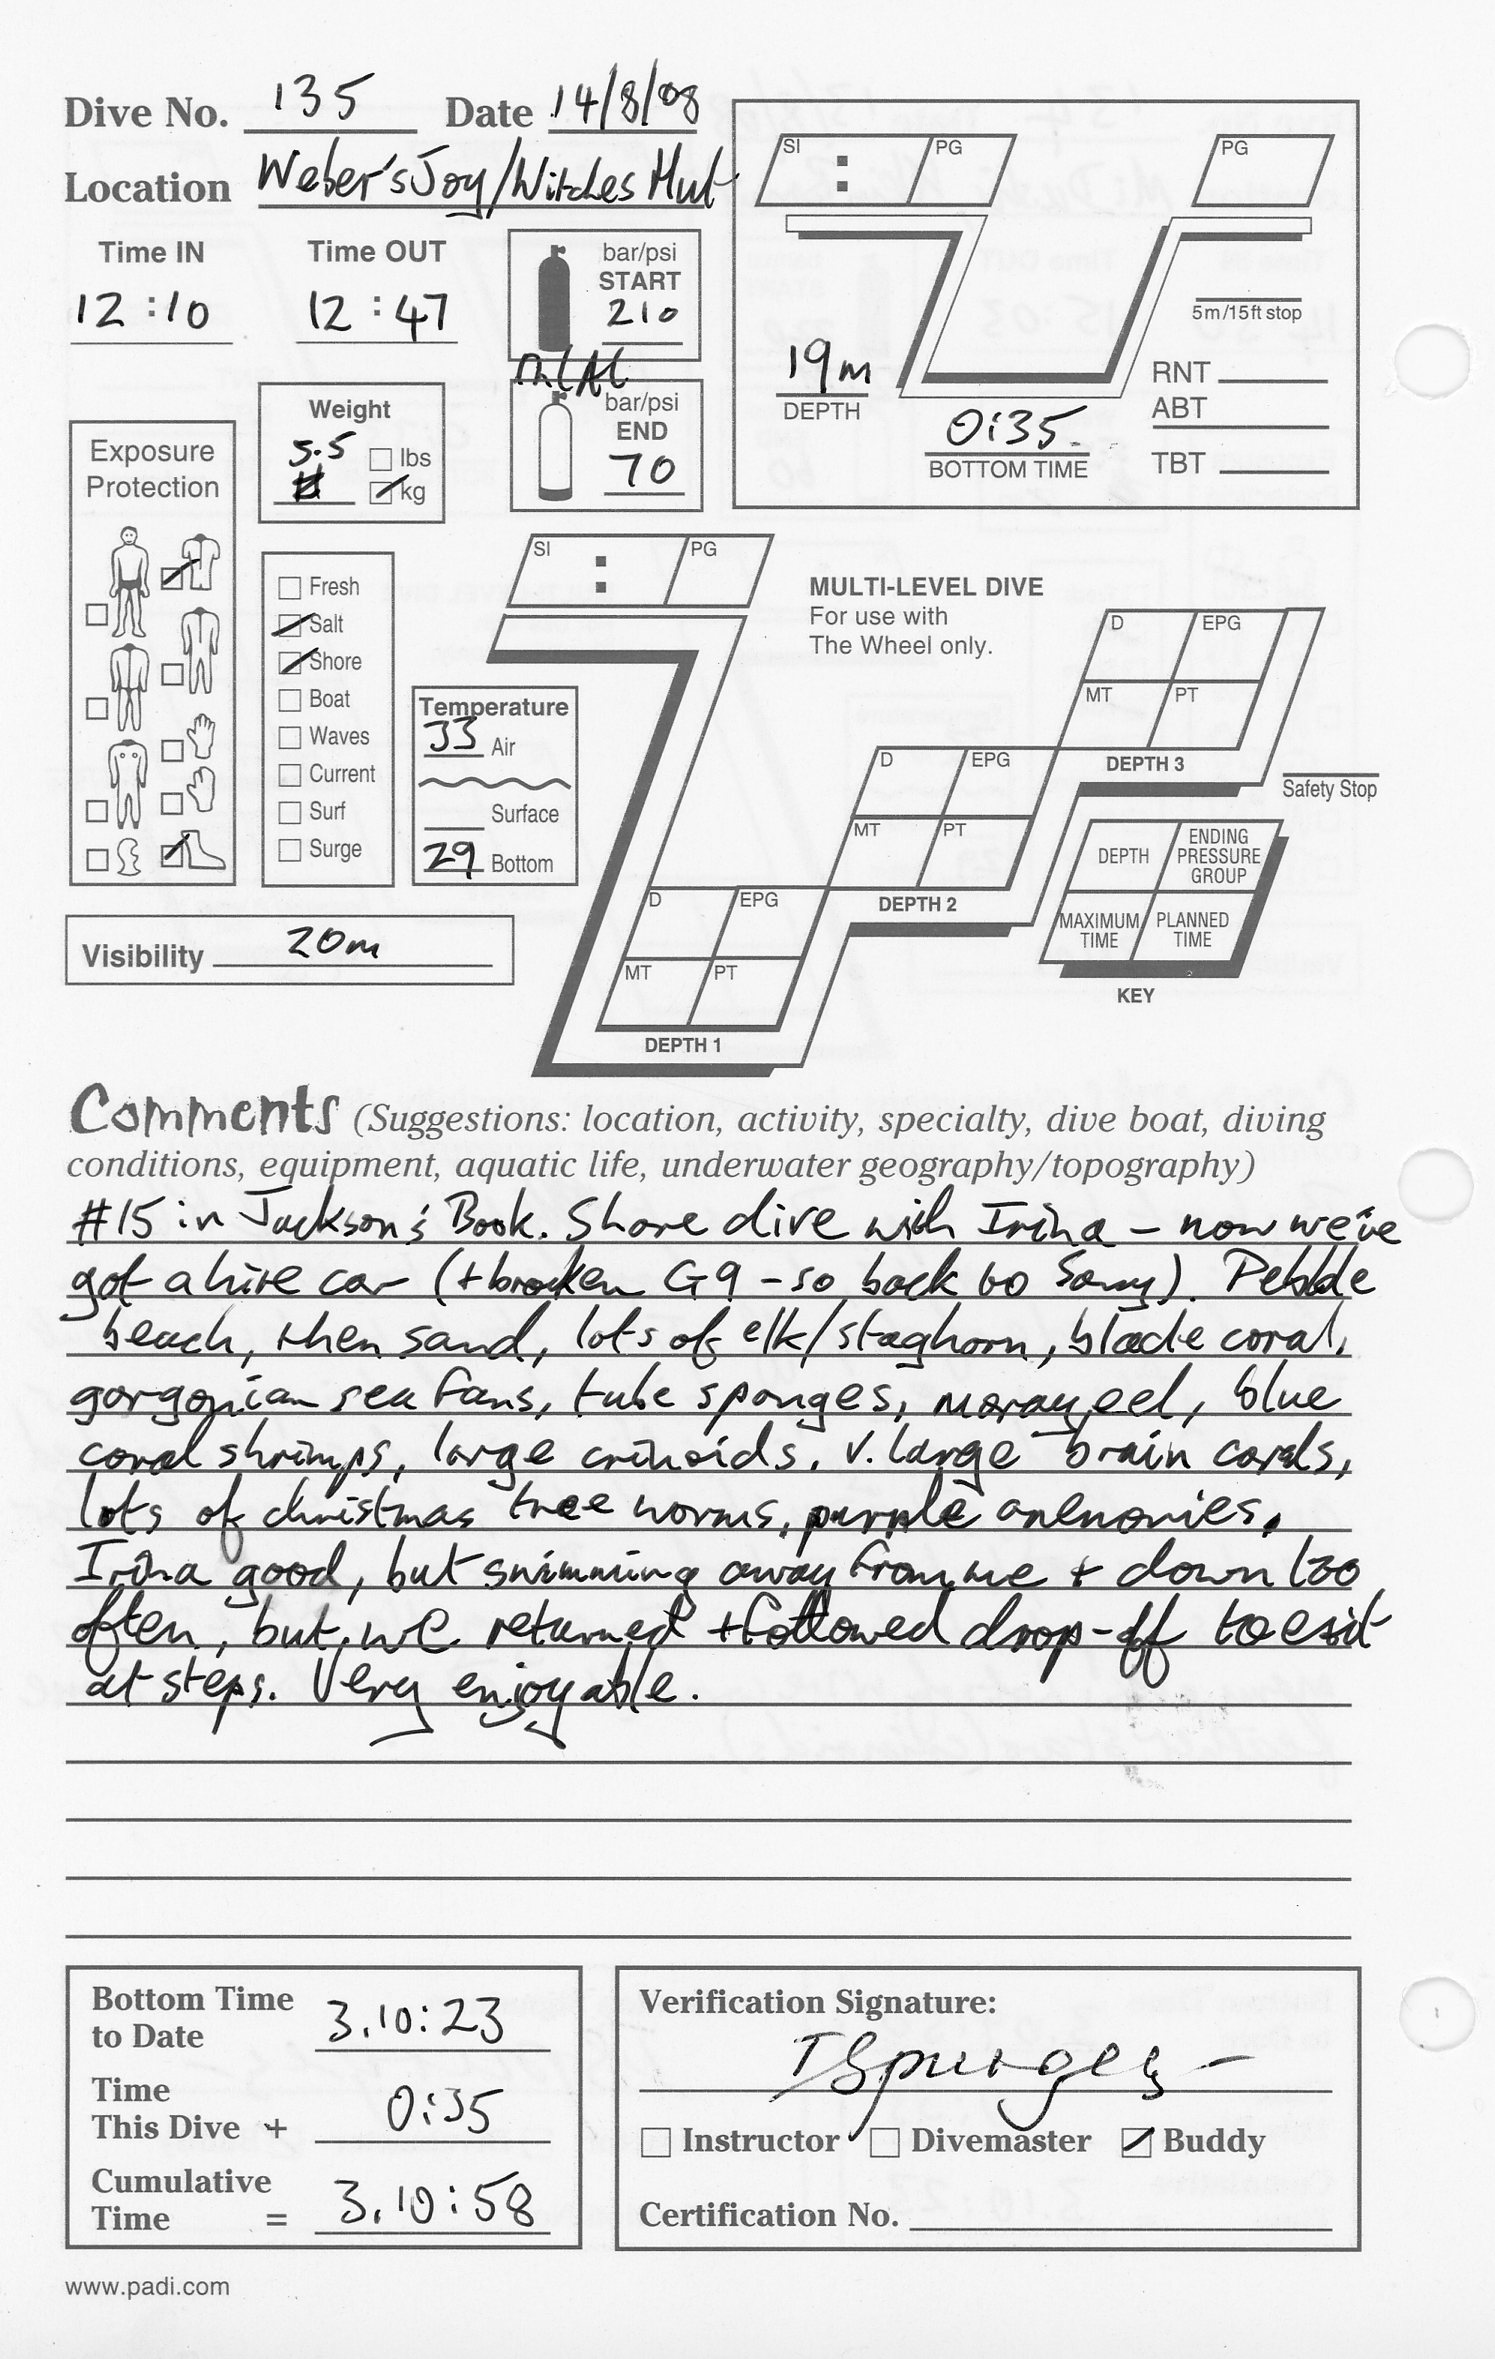 Dive No. 135 Date 14/8/08
Location Weber's Joy/Witches Hut
Time IN Time OUT
12:10 12:47
bar/psi
START
210
bar/psi
END
70
Weight
5.5
lbs
kg
Exposure
Protection
Fresh
Salt
Shore
Boat
Waves
Current
Surf
Surge
Temperature
33 Air
Surface
29 Bottom
Visibility 20m
SI : PG
PG
5m/15ft stop
19m
DEPTH
0:35
BOTTOM TIME
RNT
ABT
TBT
SI : PG
MULTI-LEVEL DIVE
For use with
The Wheel only.
D EPG
MT PT
DEPTH 3
Safety Stop
D EPG
MT PT
DEPTH 2
D EPG
MT PT
DEPTH 1
DEPTH
ENDING
PRESSURE
GROUP
MAXIMUM
TIME
PLANNED
TIME
KEY
Comments (Suggestions: location, activity, specialty, dive boat, diving
conditions, equipment, aquatic life, underwater geography/topography)
#15 in Jackson's Book. Shore dive with Irina - now we've
got a hire car (+ broken G9 - so back to Sony). Pebble
beach, then sand, lots of elk/staghorn, blade coral,
gorgonian sea fans, tube sponges, moray eel, blue
coral shrimps, large crinoids, v. large brain corals,
lots of christmas tree worms, purple anenomies.
Irina good, but swimming away from me + down too
often, but we returned + followed drop-off to exit
at steps. Very enjoyable.
Bottom Time
to Date 3.10:23
Time
This Dive + 0:35
Cumulative
Time = 3.10:58
Verification Signature:
I Spurgey
Instructor Divemaster Buddy
Certification No.
www.padi.com